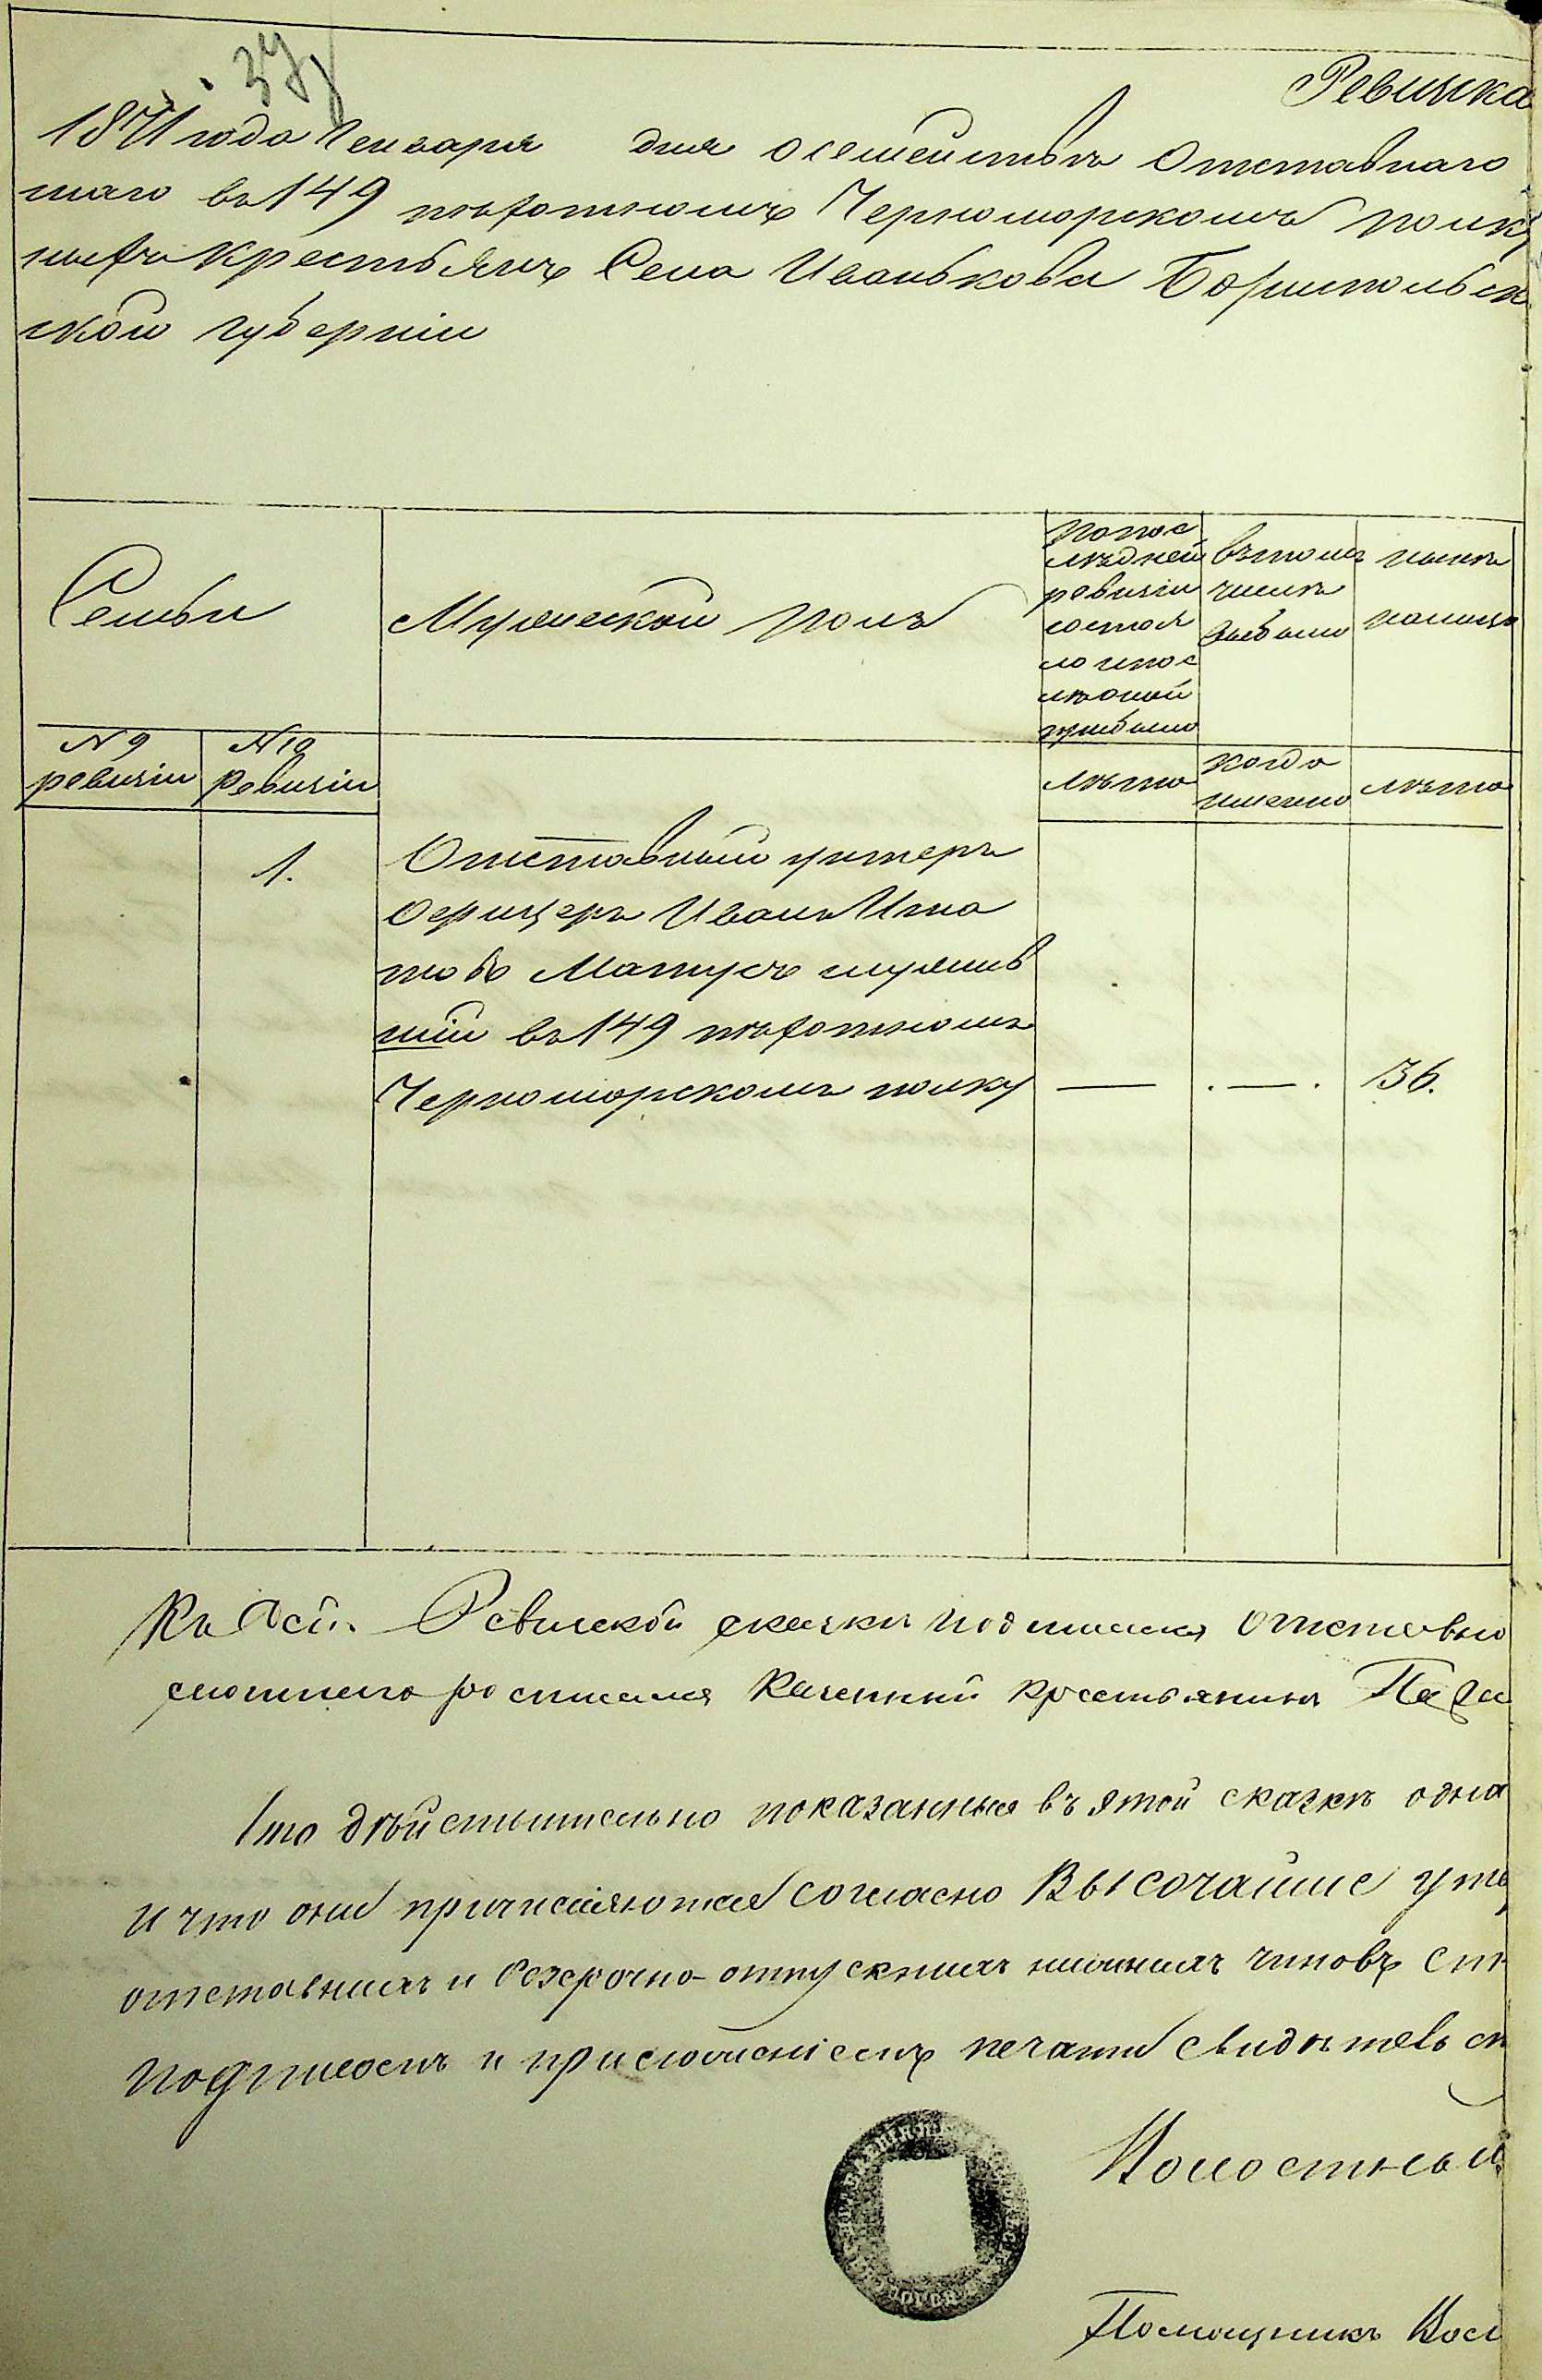 Ревижка
37
1871 года Генваря дня о семействѣ Отставнаго
шаго въ 149 пѣхотномъ Черноморскомъ полк
ныхъ крестьянъ Села Иванькова Борисполь
ской губерніи
Семьи
Мужеской полъ
По пос
лѣдней
ревизіи
состоя
ло и пос
лѣ оной
прибыло
Въ томъ
числѣ
выбыло
нынѣ
налицо
№ 9
ревизіи
№ 10
Ревизіи
лѣта
когда
именно
лѣта
1.
Отставный унтеръ
Офицеръ Иванъ Игна
товъ Матусъ служив
шій въ 149 пѣхотномъ
Черноморскомъ полку — . — . 36.
Къ сей Ревиской сказки подписка Отставно
росписался Казенный крестьянинъ
Что дѣйствительно показанныя въ этой сказкѣ одна
и что они причисляются согласно Высочайше утв
отставныхъ и безсрочно-отпускныхъ нижнихъ чиновъ
подписомъ и приложеніемъ печати свидѣтельст
Волостный
Помощникъ Вол